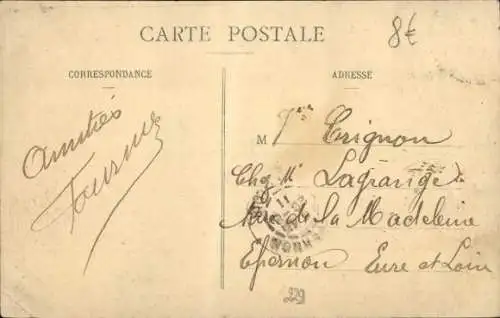 CARTE POSTALE
8€
CORRESPONDANCE
ADRESSE
Amitiés
M
Grignon
Chez Mr Lagrange
Rue de la Madeleine
Epernon Eure et Loir
229